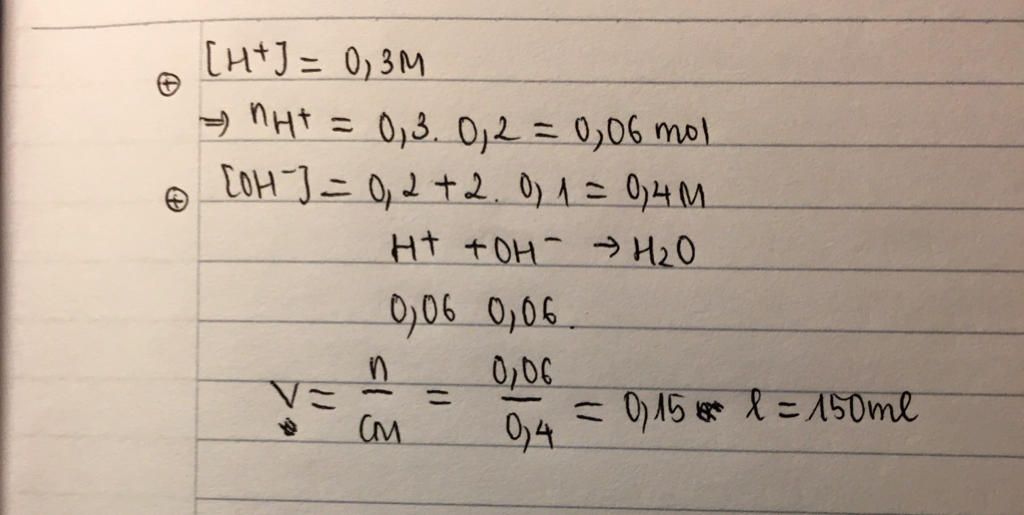 ⊕ [H+] = 0,3M
⇒ nH+ = 0,3. 0,2 = 0,06 mol
⊕ [OH-] = 0,2 + 2. 0,1 = 0,4M
H+ + OH- → H2O
0,06 0,06.
V = n/CM = 0,06/0,4 = 0,15 l = 150ml